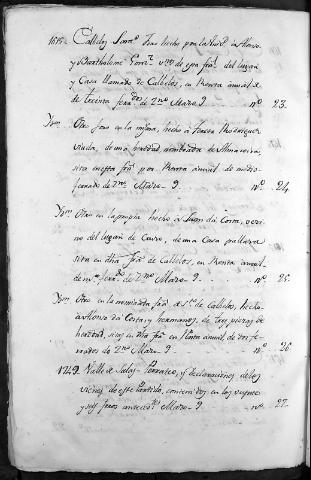 1615. Callelos Santa. foro hecho por la dha. en Alonso
y Bartholome Gomz. vzos. de esta fra. del lugar
y Casa llamada de Callelos, en Renta anual
de treinta ferados de Zno. Marzo 9 no. 23.
Ydm. Otro foro en la misma, hecho a Teresa Rodriguez
viuda, de una heredad nombrada de
sita en esta fra. por Renta anual de medio
ferrado de Zno. Marzo - 9. no. 24.
Ydm. Otro en la propia hecho a Juan da Costa, vezi-
no del lugar de Couso, de una Casa pallaza
sita en dha. fra. de Callelos, en Renta anual
de ferdo. de Zno. Marzo - 9 no. 25.
Ydm. Otro en la nominada fra. de Sta. de Callelos, hecho
a Alonso da Costa, y hermanos, de tres piezas de
heredad, sitas en dha. fra. en Renta anual, de dos fe-
rrados de Zno. Marzo - 9 no. 26
1749. Valle de Salzs. Ferrasco, y declaraciones de los
vecinos de este Partido, contenidos en los veynte
y seis foros antecetes. Marzo - 9. no. 27.